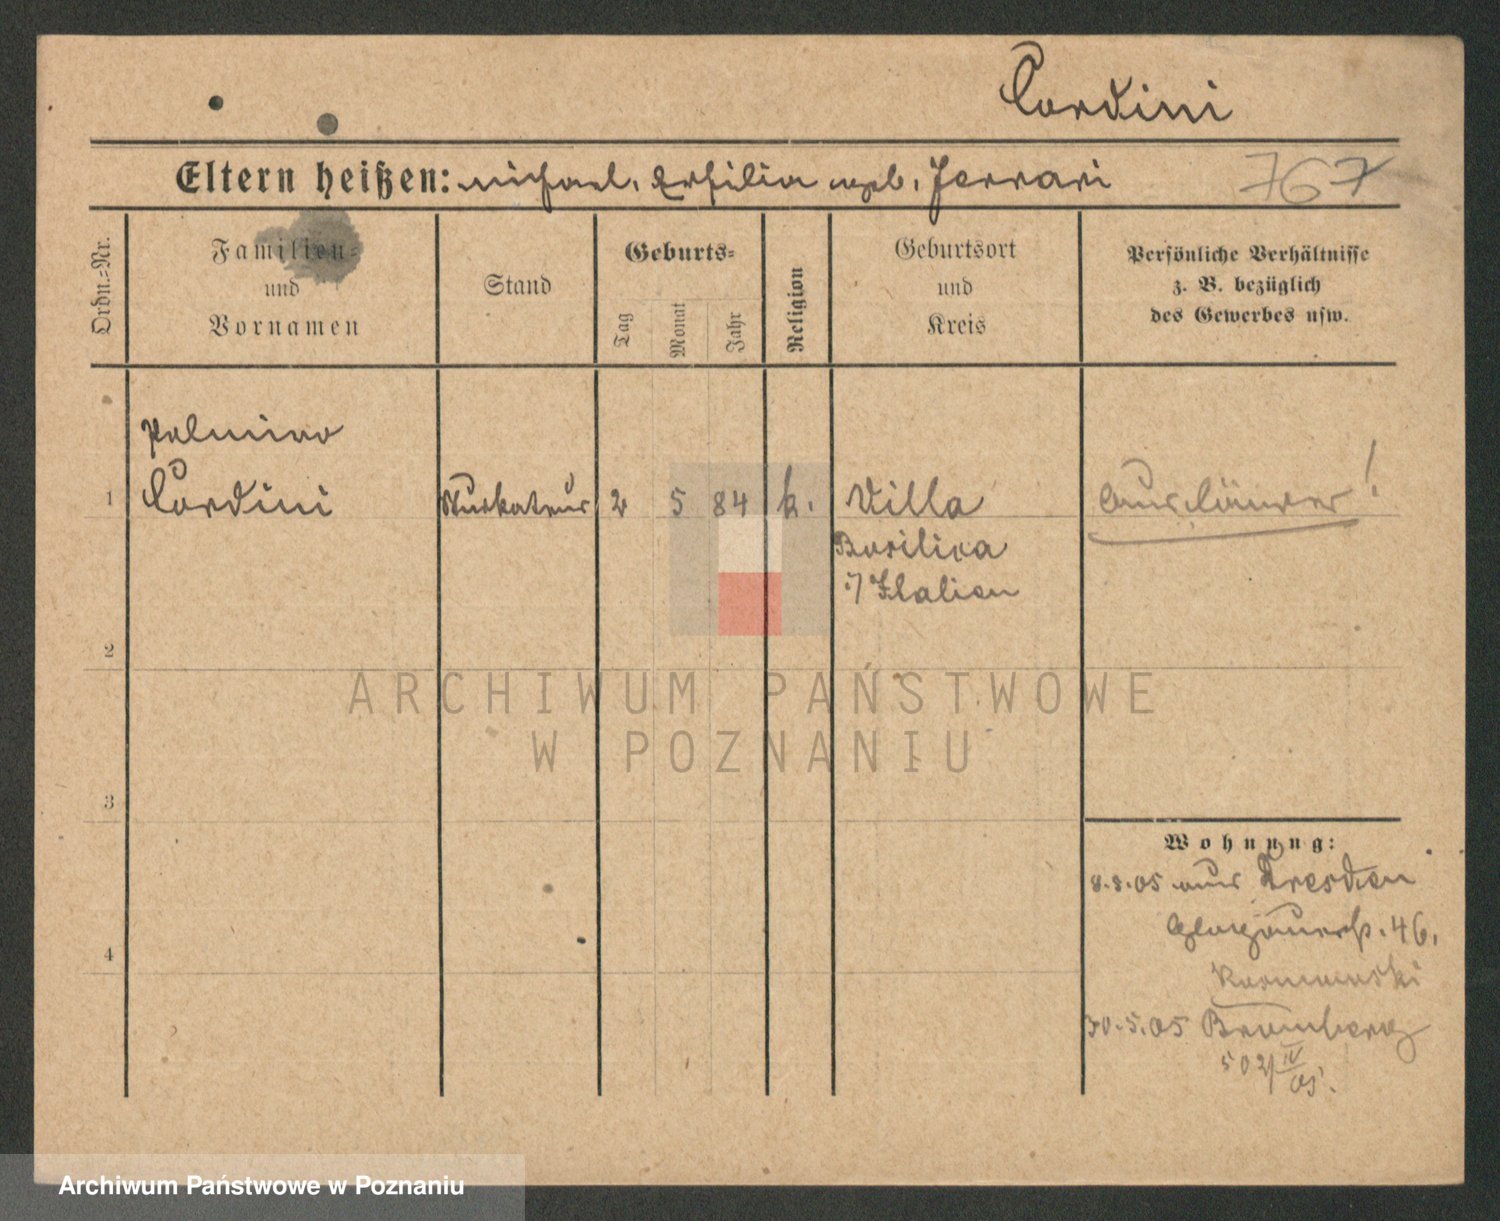 Cordini
Eltern heißen: Michael, Ersilia geb. Ferrari
767
Ordn.=Nr.
Familien=
und
Vornamen
Stand
Geburts=
Tag
Monat
Jahr
Religion
Geburtsort
und
Kreis
Persönliche Verhältnisse
z. B. bezüglich
des Gewerbes usw.
Palmiro
1 Cordini Stukateur 2 5 84 k. Villa Ausländer!
Basilica
i/ Italien
2
ARCHIWUM PAŃSTWOWE
W POZNANIU
3
Wohnung:
8.3.05 aus Dresden
Glogauerstr. 46.
4
30.5.05 Bromberg
502/IV
05.
Archiwum Państwowe w Poznaniu